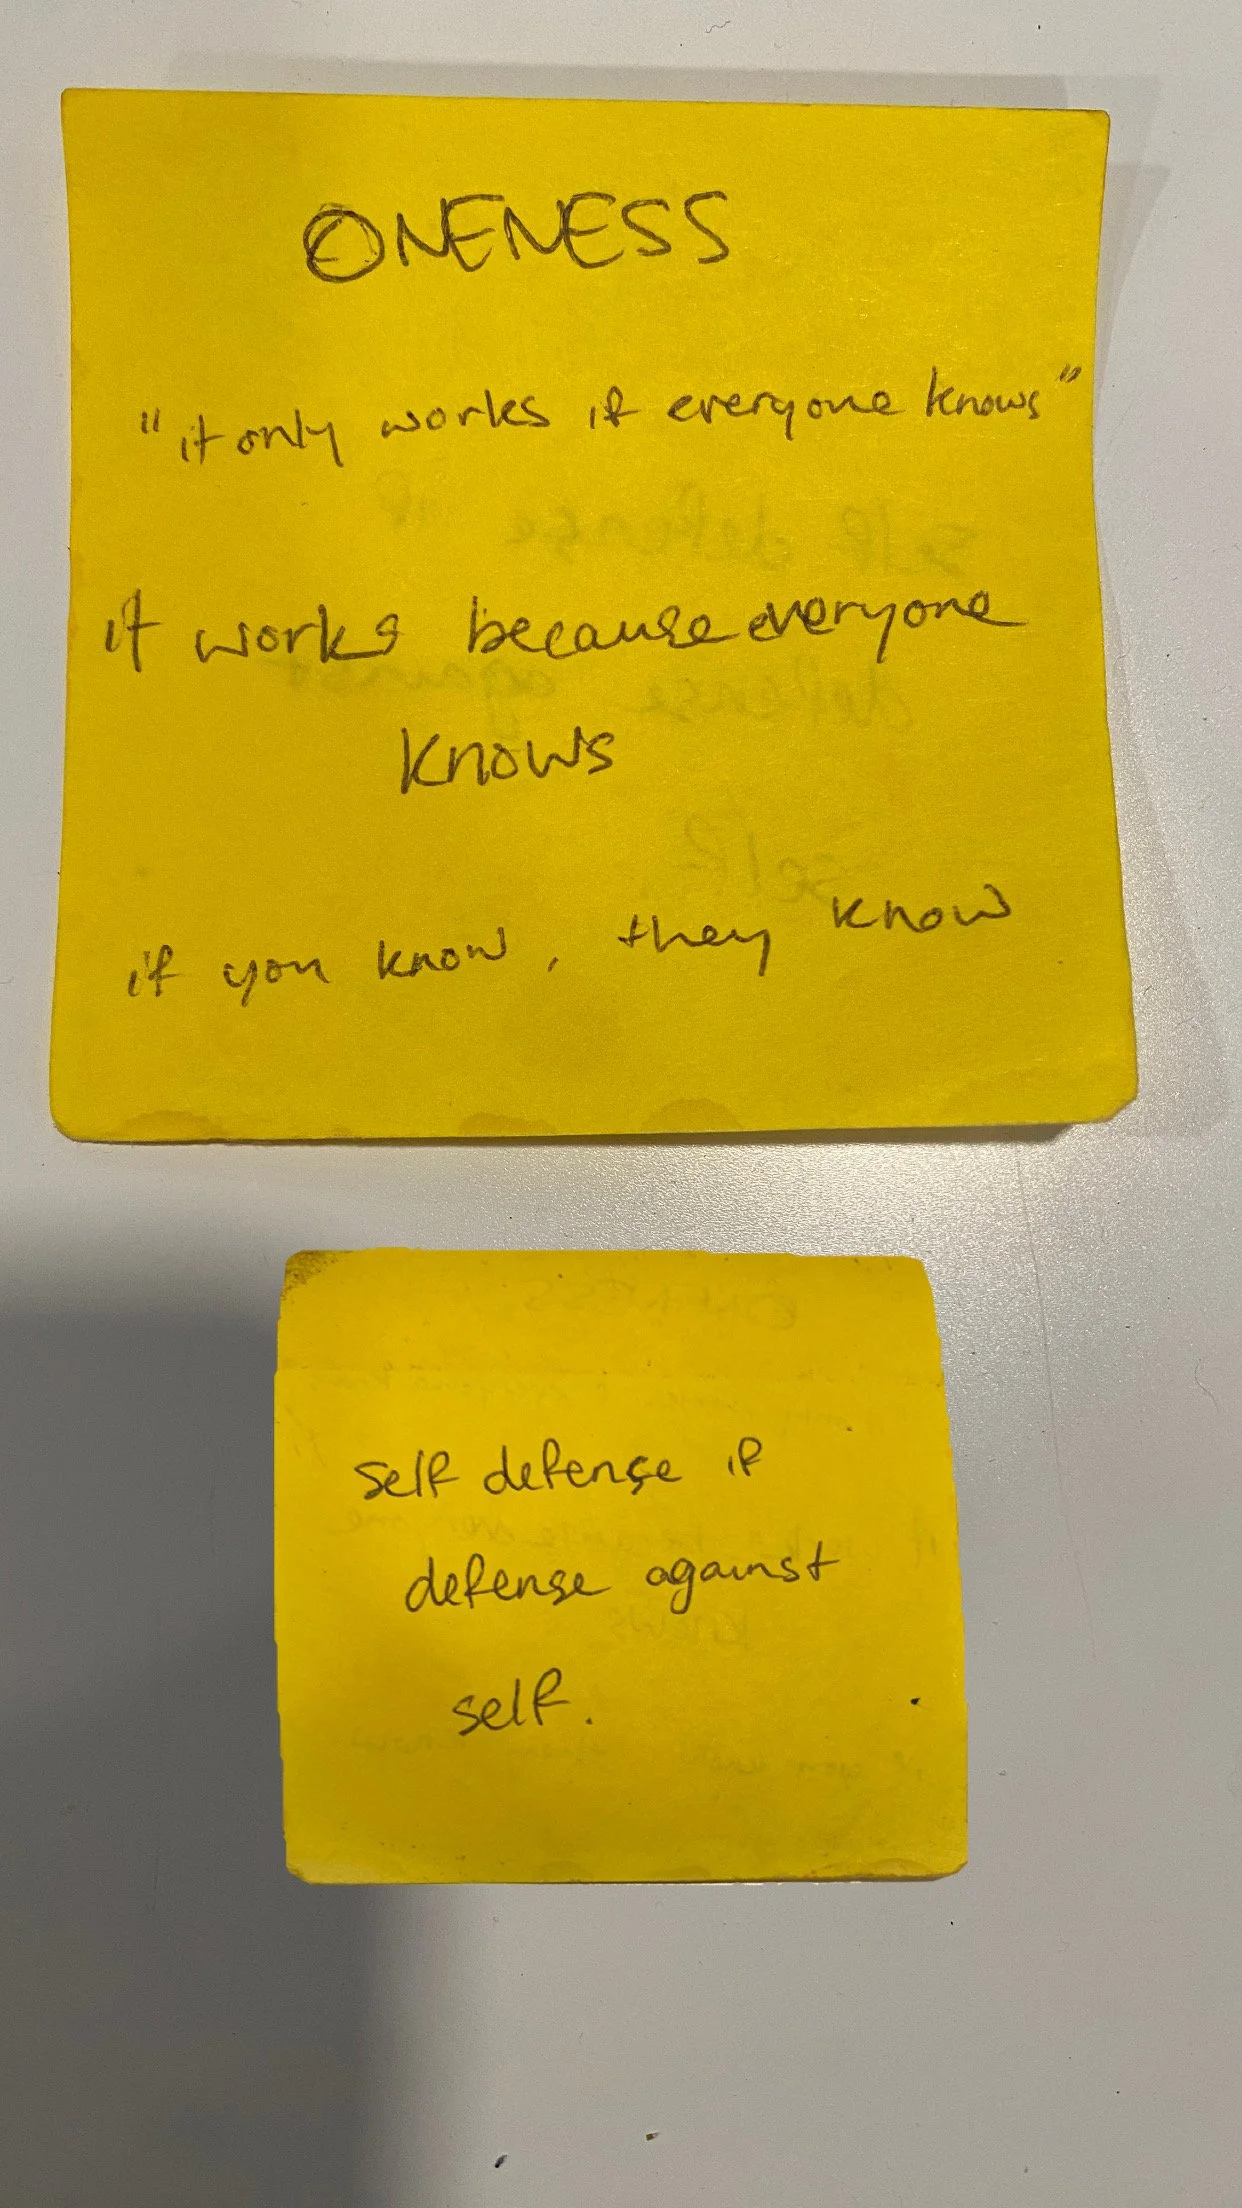 ONENESS
"it only works if everyone knows"
it works because everyone
knows
if you know, they know
self defense if
defense against
self.